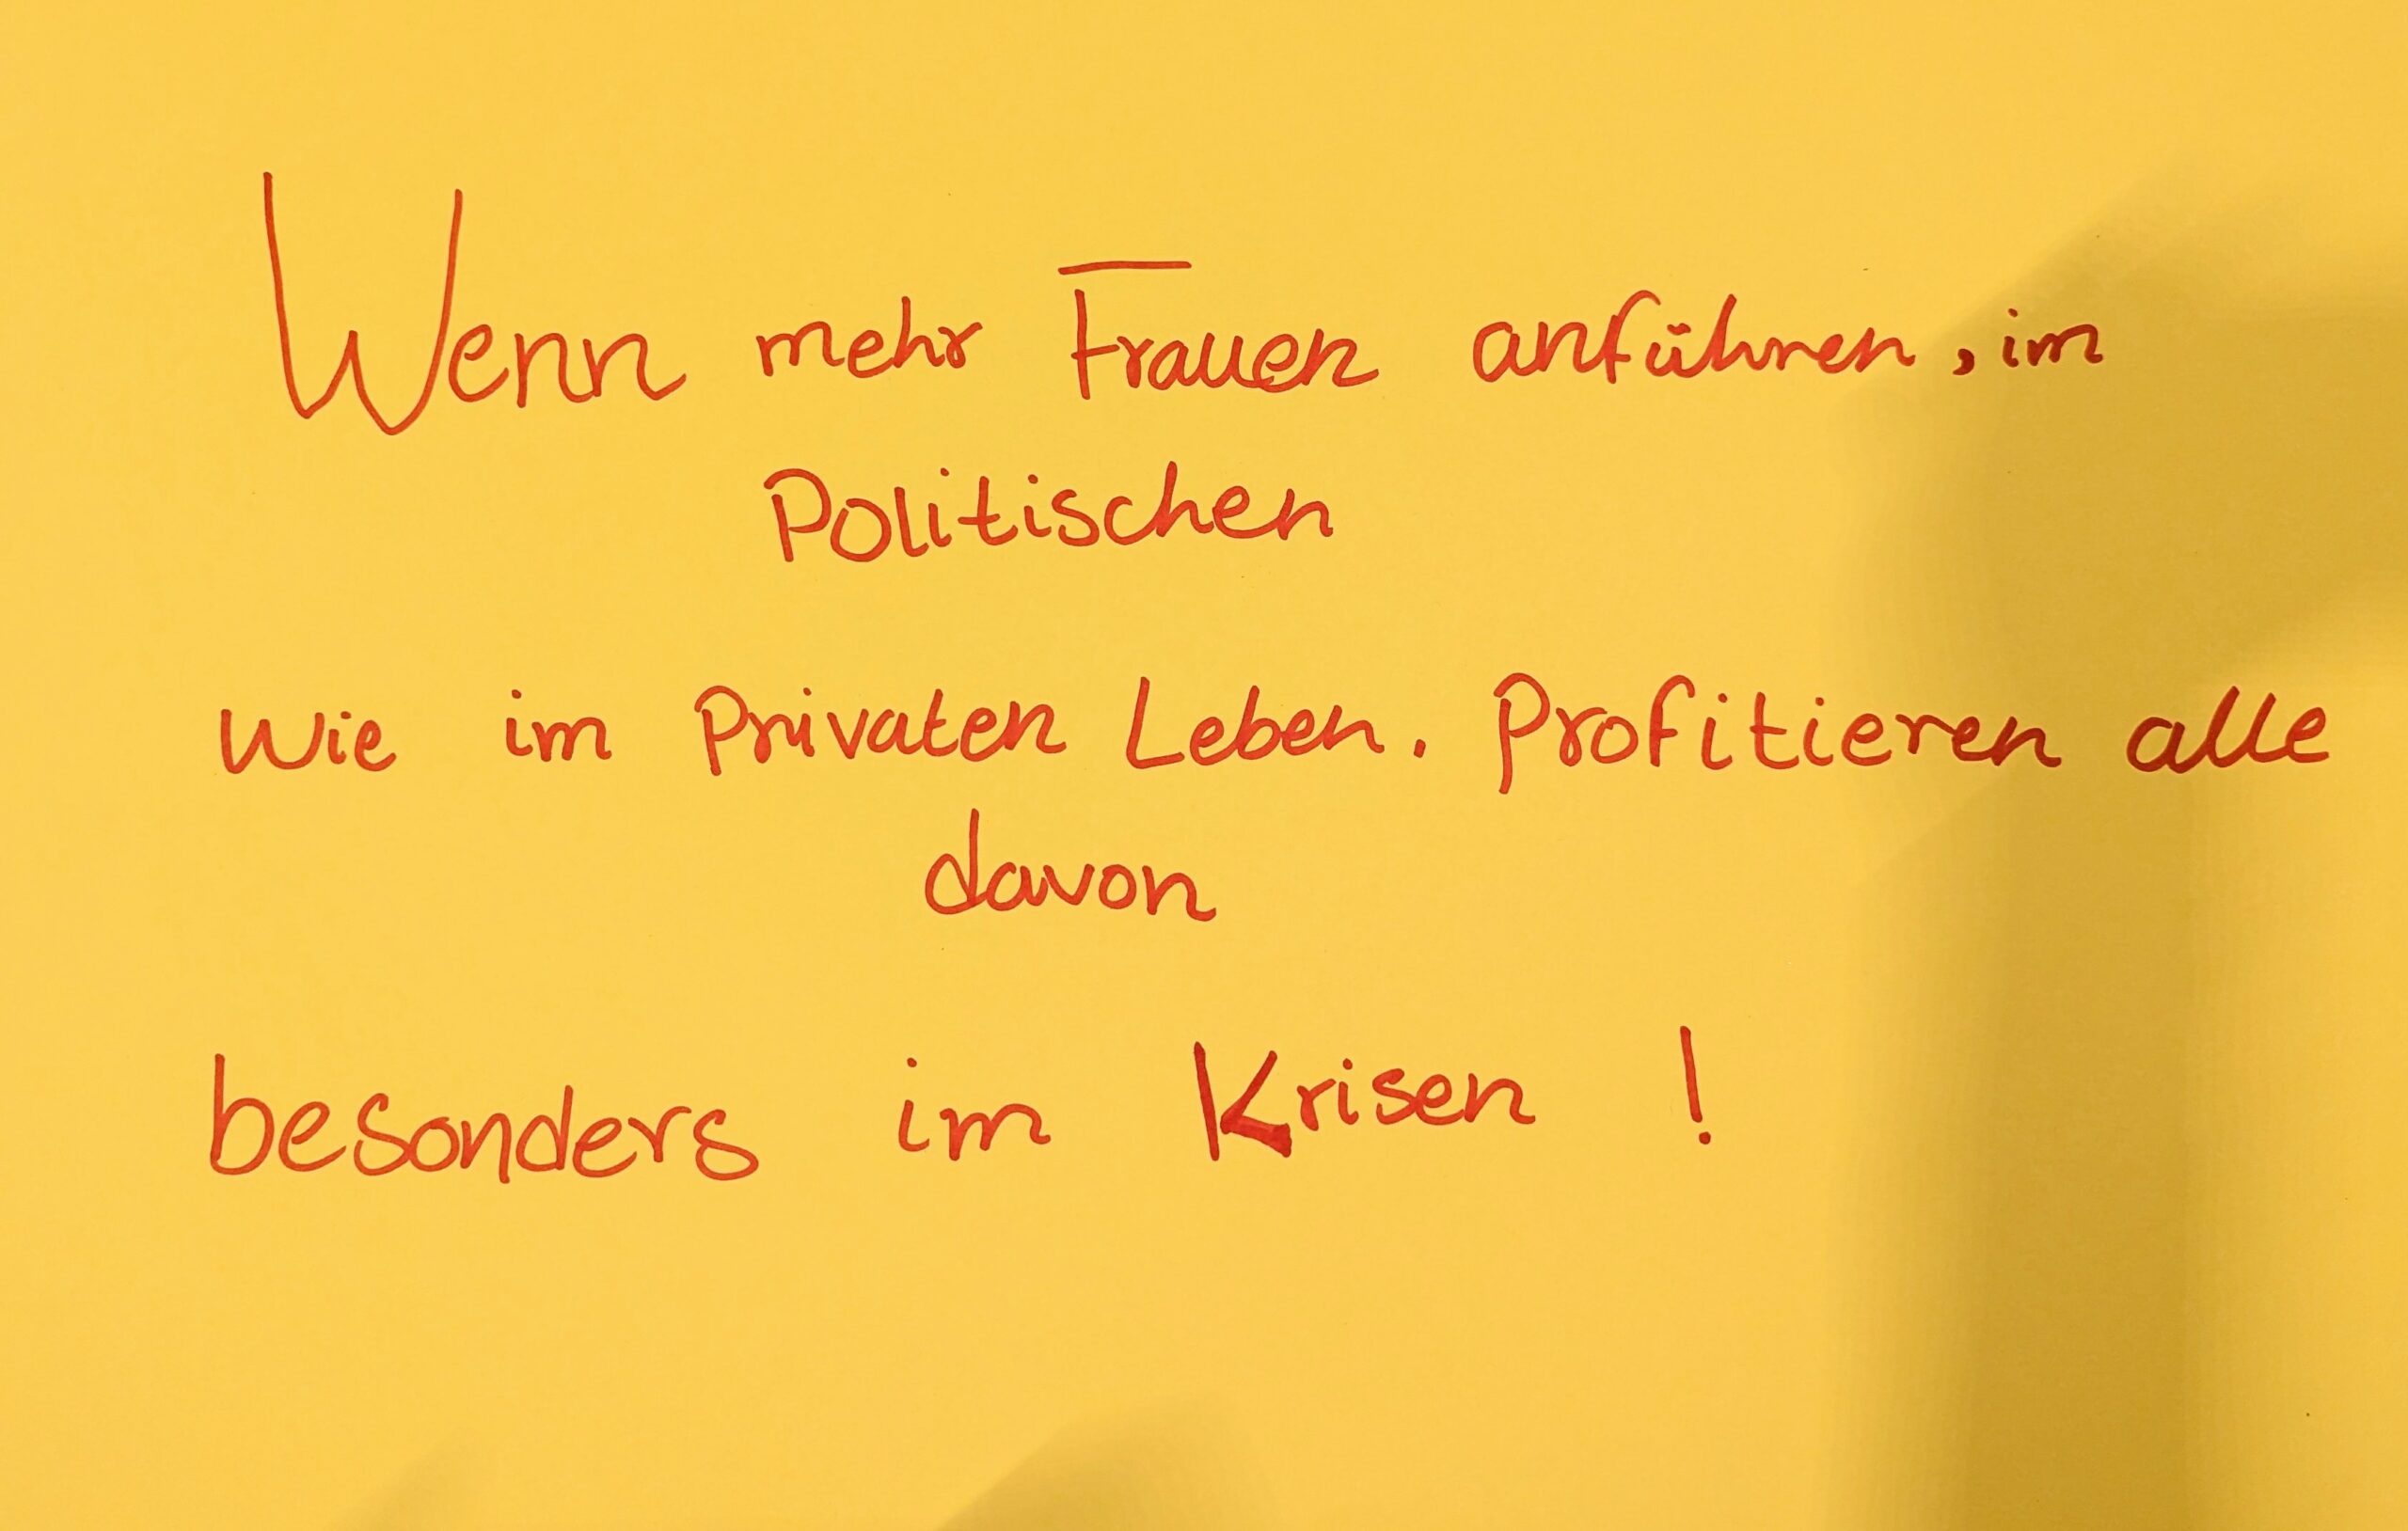 Wenn mehr Frauen anführen, im
Politischen
wie im Privaten Leben. Profitieren alle
davon
besonders im Krisen !